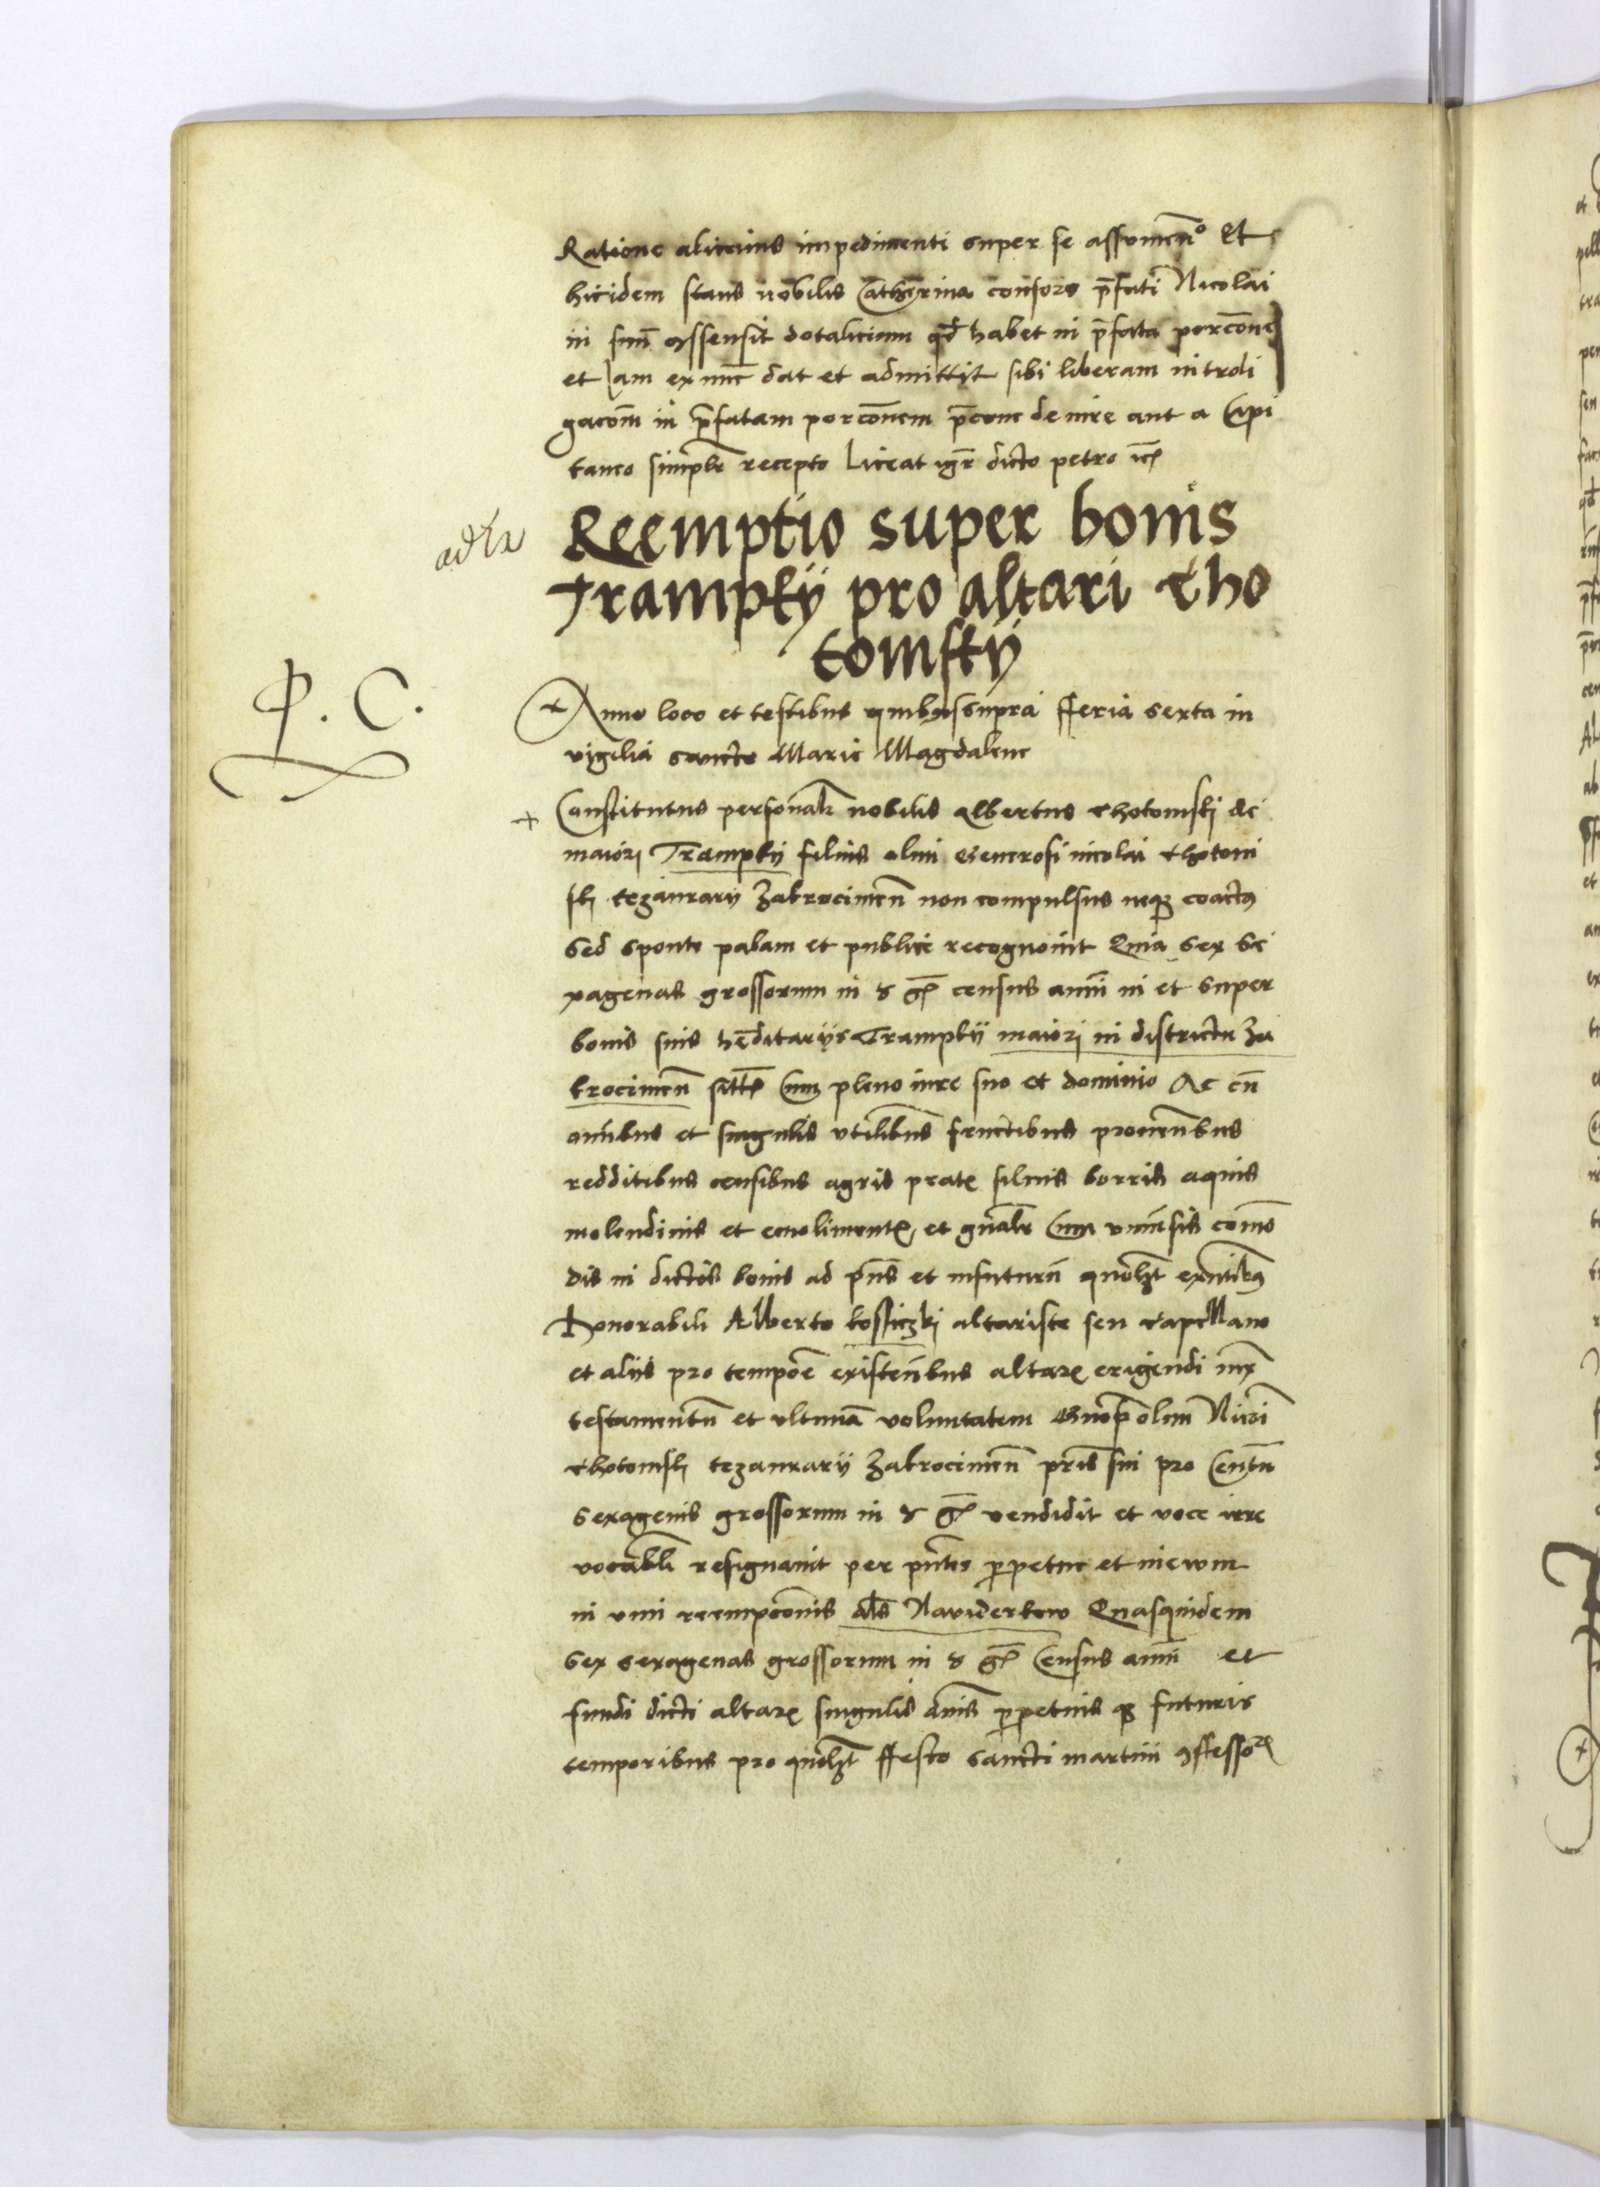 Ratione alicuius impedimenti super se assumen̄º Et
hicidem stans nobilis Catherina consors p̄fati Nicolai
in suū assensit dotalicium qd habet in p̄fata porcōne
et Iam ex nūc dat et admittit sibi liberam introli
gacōm in p̄fatam porcōnem p̄cone de iure aut a Capi
taneo simplr recepto Liceat igr dicto petro
Reemptio super bonis
Trampky pro altari Cho
tomsky
P. C.
Anno loco et testibus quibus supra fferia sexta in
vigilia sancte Marie Magdalene
Constitutus personalr nobilis Albertus Chotomski de
maiori Trampky filius olim Generosi nicolai Chotom
ski tezaurarij Zakrocimen̄ non compulsus neqz coactus
Sed sponte palam et publice recognouit Quia sex Se
xagenas grossorum in census annui in et super
bonis suis hēditarijs Trampky maiori in districtu Za
krocimen̄ Cum pleno iure suo et dominio Ac cū
omibus et singulis vtilibus fructibus prouenbus
redditibus censibus agris prat siluis borris aquis
molendinis et emolimentꝭ et gnalr Cum vniuersis como
dis in dictis bonis ad pns et infuturū quolzt exntibus
Honorabili Alberto kosściczki altariste seu Capellano
et alijs pro tempore existenbus altarꝭ erigendi iux
testamentū et vltimā voluntatem Gnosi olim Nicoi
Chotomski tezaurarij Zakrocimen̄ pris sui pro Centū
sexagenis grossorum in vendidit et voce irre
vocabli resignauit per pntes ppetue et in ewm
in vim reempcōnis als Nawiderkow Quasquidem
sex sexagenas grossorum in Census annui et
fundi dicti altarꝭ singulis annis ppetuis qz futuris
temporibus pro quolzt ffesto sancti martini 9fessorꝭ